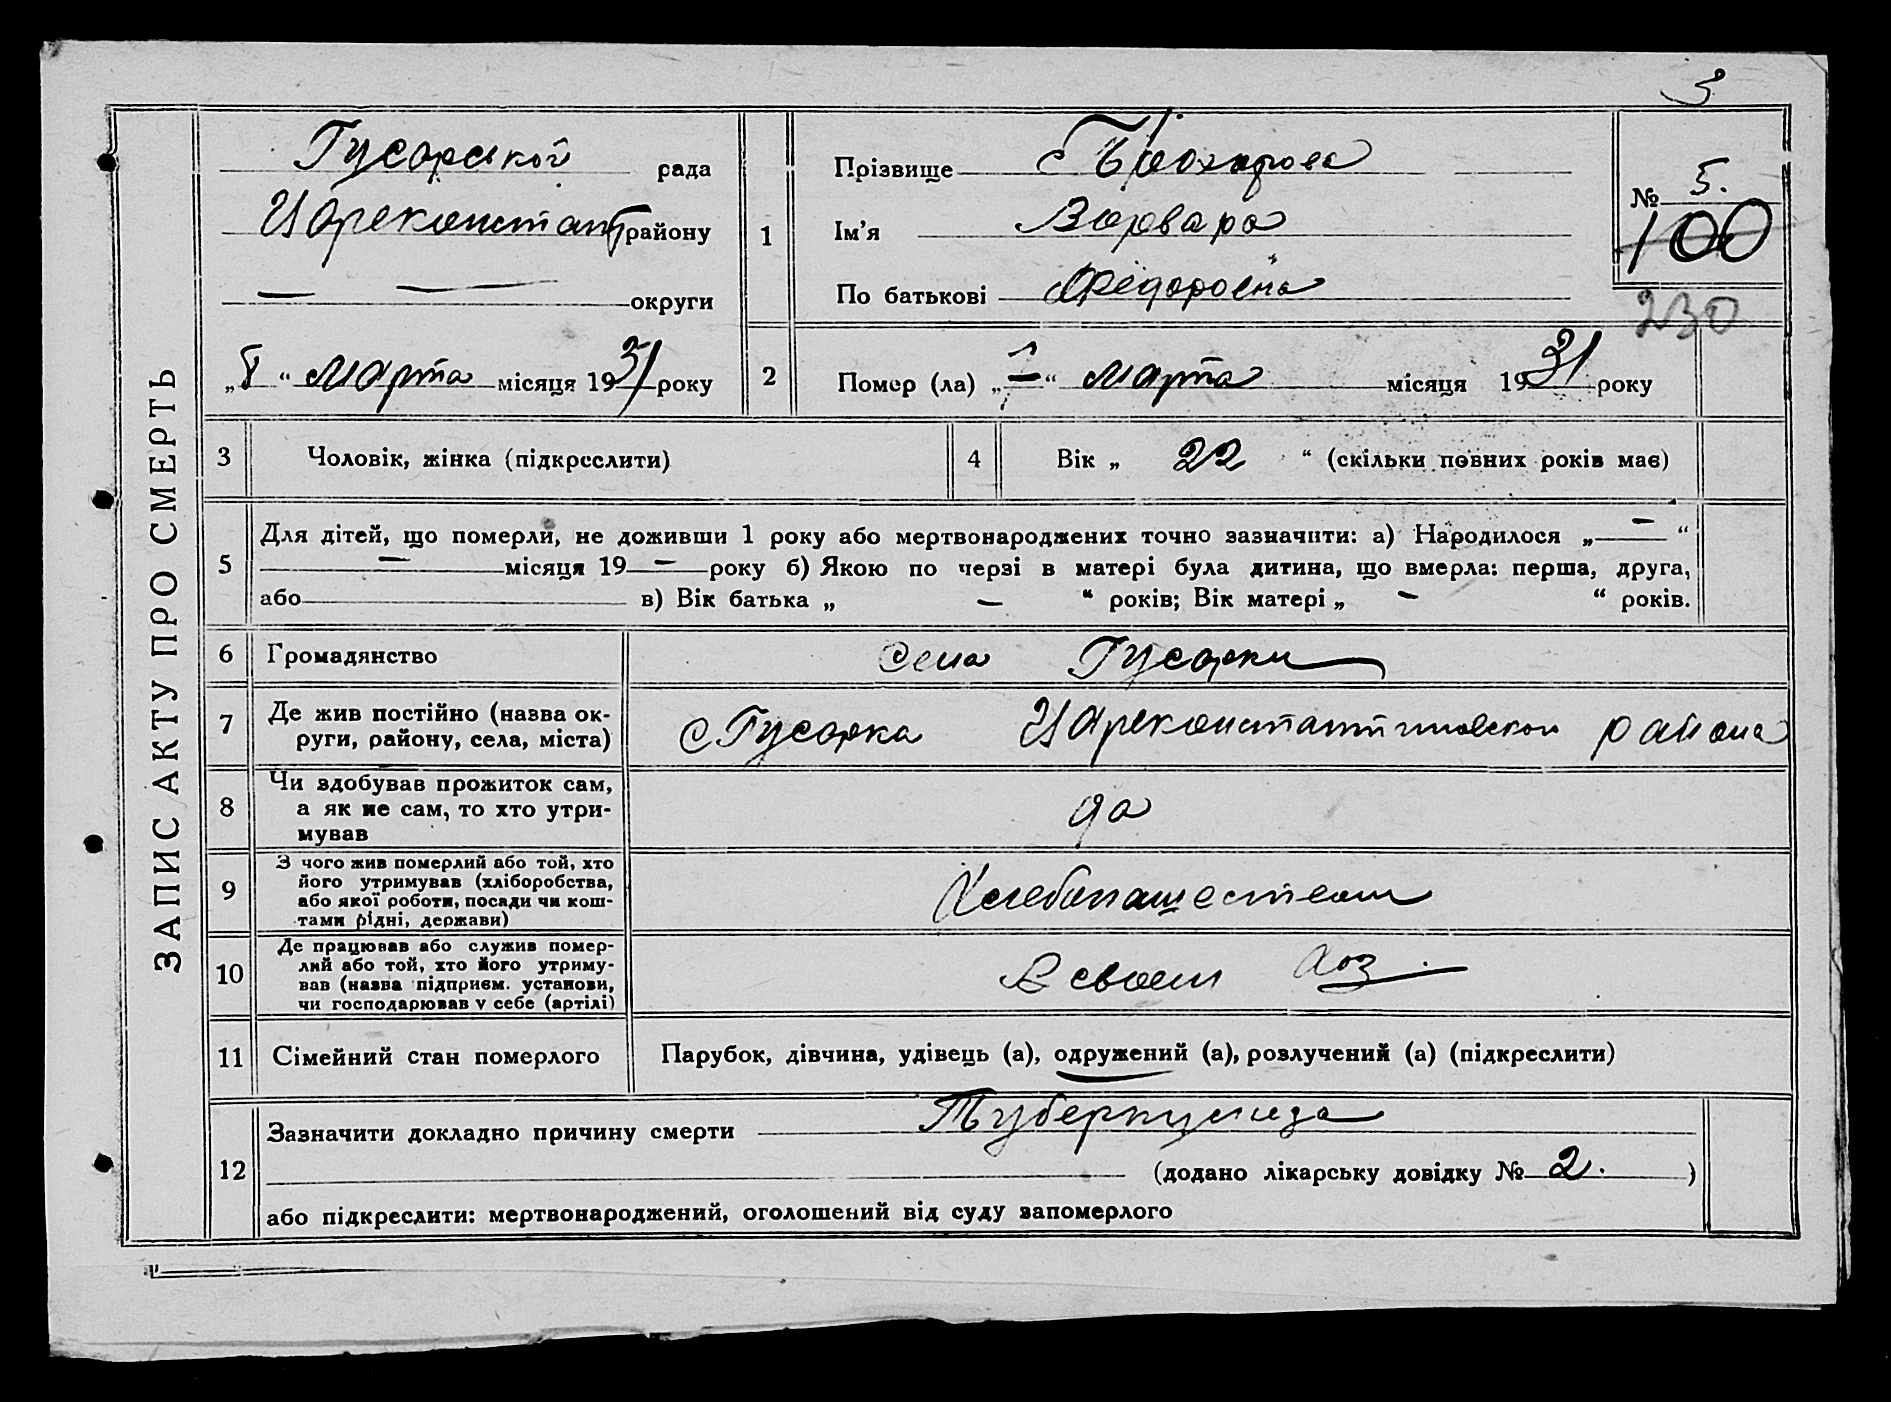 3
ЗАПИС АКТУ ПРО СМЕРТЬ
Гусарской рада
Цареконстант району
— — округи
„5“ марта місяця 1931 року
1
Прізвище
Ім'я Варвара
По батькові Фёдоровна
№ 5.
100
230
2
Помер (ла) „1“ марта місяця 1931 року
3 Чоловік, жінка (підкреслити)
4 Вік „ 22 “ (скільки повних років має)
5
Для дітей, що померли, не доживши 1 року або мертвонароджених точно зазначити: а) Народилося „ — “
— місяця 19 — року б) Якою по черзі в матері була дитина, що вмерла: перша, друга,
або в) Вік батька „ — “ років; Вік матері „ — “ років.
6 Громадянство Села Гусарки
7 Де жив постійно (назва ок-
руги, району, села, міста)
С Гусарка Цареконстантиновского района
8 Чи здобував прожиток сам,
а як не сам, то хто утри-
мував
да
9 З чого жив померлий або той, хто
його утримував (хліборобства,
або якої роботи, посади чи кош-
тами рідні, держави)
Хлебопашеством
10 Де працював або служив помер-
лий або той, хто його утриму-
вав (назва підприєм. установи,
чи господарював у себе (артілі)
В своем хоз.
11 Сімейний стан померлого
Парубок, дівчина, удівець (а), одружений (а), розлучений (а) (підкреслити)
12
Зазначити докладно причину смерти Туберкулиоза
(додано лікарську довідку № 2. )
або підкреслити: мертвонароджений, оголошений від суду запомерлого